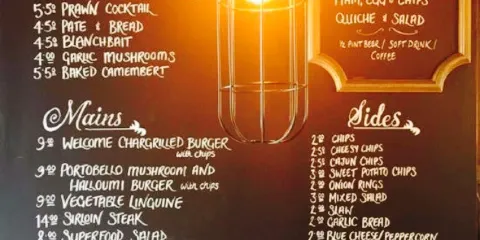 5.50 PRAWN COCKTAIL
4.50 PATE & BREAD
4.50 BLANCHBAIT
4.00 GARLIC MUSHROOMS
5.50 BAKED CAMEMBERT
HAM, EGG & CHIPS
QUICHE & SALAD
½ PINT BEER / SOFT DRINK /
COFFEE
Mains
9.00 WELCOME CHARGRILLED BURGER
with chips
9.00 PORTOBELLO MUSHROOM AND
HALLOUMI BURGER with chips
9.00 VEGETABLE LINGUINE
14.00 SIRLOIN STEAK
8.00 SUPERFOOD SALAD
Sides
CHIPS
CHEESY CHIPS
CAJUN CHIPS
SWEET POTATO CHIPS
ONION RINGS
MIXED SALAD
SLAW
GARLIC BREAD
BLUE CHEESE/PEPPERCORN